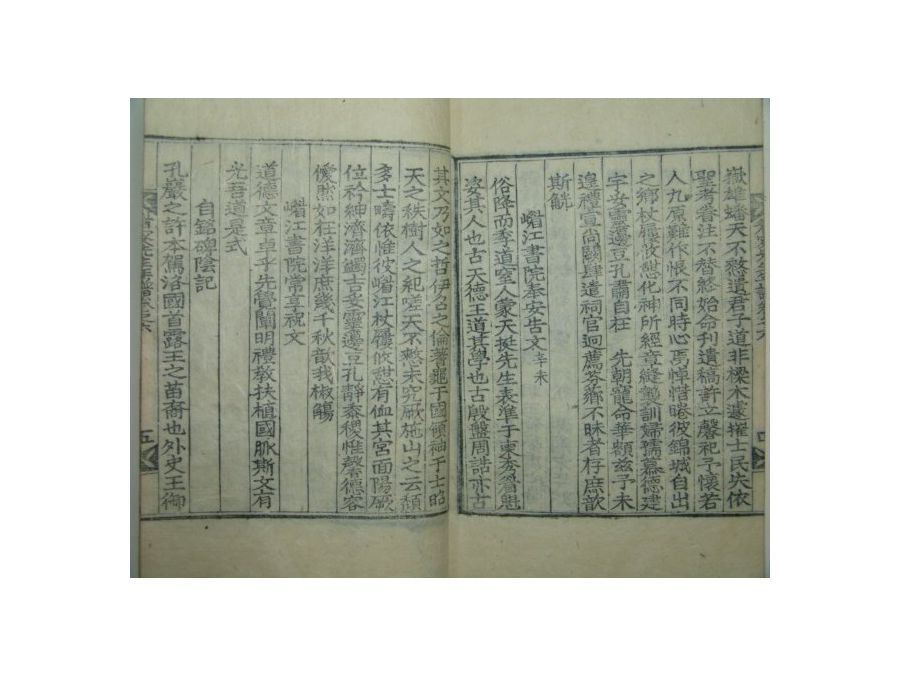 嶽雄蟠天不憖遺君子道非樑木遽摧士民失依
聖考眷注不替終始命刊遺稿許立馨祀予懷若
人九原難作恨不同時心焉悼惜睠彼錦城自出
之鄉杖履攸憩化神所經章縫敦訓婦孺慕德建
宇妥靈籩豆孔肅自在 先朝寵命華額玆予未
遑禮宣尚闕肆遣祠官逈薦芬薌不昧者存庶歆
斯觥
嵋江書院奉安告文 辛未
俗降而季道窒人蒙天挺先生表準于東秀眉魁
姿其人也古天德王道其學也古殷盤周誥亦古
四
其文乃如之哲伊今之倫蓍龜于國領袖于士昭
天之秩樹人之紀嗟天不憖未究厥施山之云頹
多士疇依惟彼嵋江杖屨攸憩有侐其宮面陽厥
位衿紳濟濟蠲吉妥靈籩豆孔靜黍稷惟馨德容
僾然如在洋洋庶幾千秋歆我椒觴
嵋江書院常享祝文
道德文章卓乎先覺闡明禮敎扶植國脈斯文有
光吾道是式
自銘碑陰記
孔巖之許本駕洛國首露王之苗裔也外史王御
五